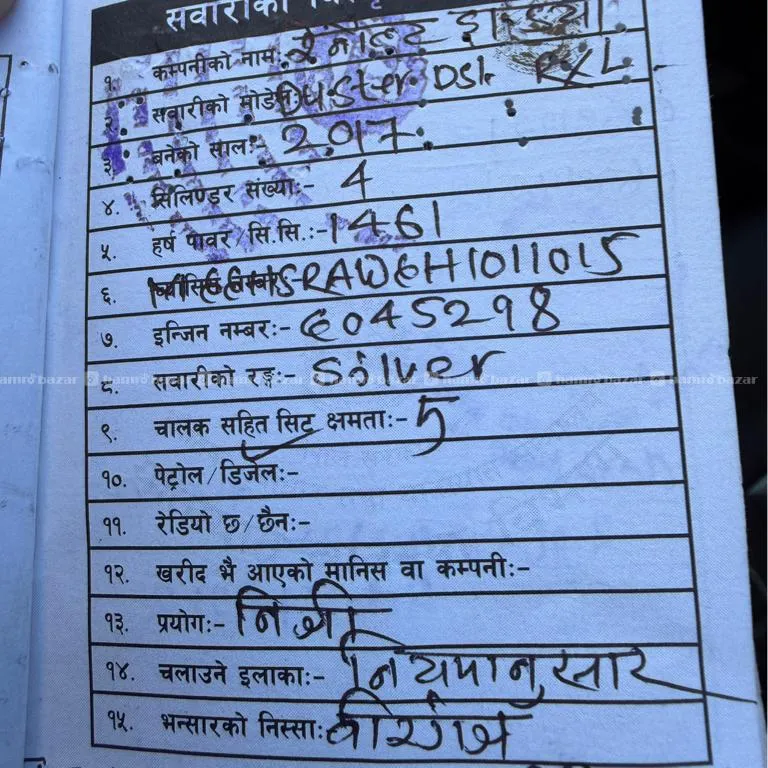 सवारीको
१. कम्पनीको नाम: रेनोल्ट इण्डिया
२. सवारीको मोडेल Duster DSL RXL
३. बनेको साल:- 2017
४. सिलिण्डर संख्या:- 4
५. हर्ष पावर/सि.सि.:- 1461
६. SRAW6H1011015
७. इन्जिन नम्बर:- E045298
८. सवारीको रङ्ग:- Silver
९. चालक सहित सिट क्षमता:- 5
hamrobazar hamrobazar hamrobazar hamrobazar hamrobazar hamrobazar
१०. पेट्रोल/डिजेल:-
११. रेडियो छ/छैन:-
१२. खरीद भै आएको मानिस वा कम्पनी:-
१३. प्रयोग:- निजी
१४. चलाउने इलाका:- नियमानुसार
१५. भन्सारको निस्सा: वीरगंज